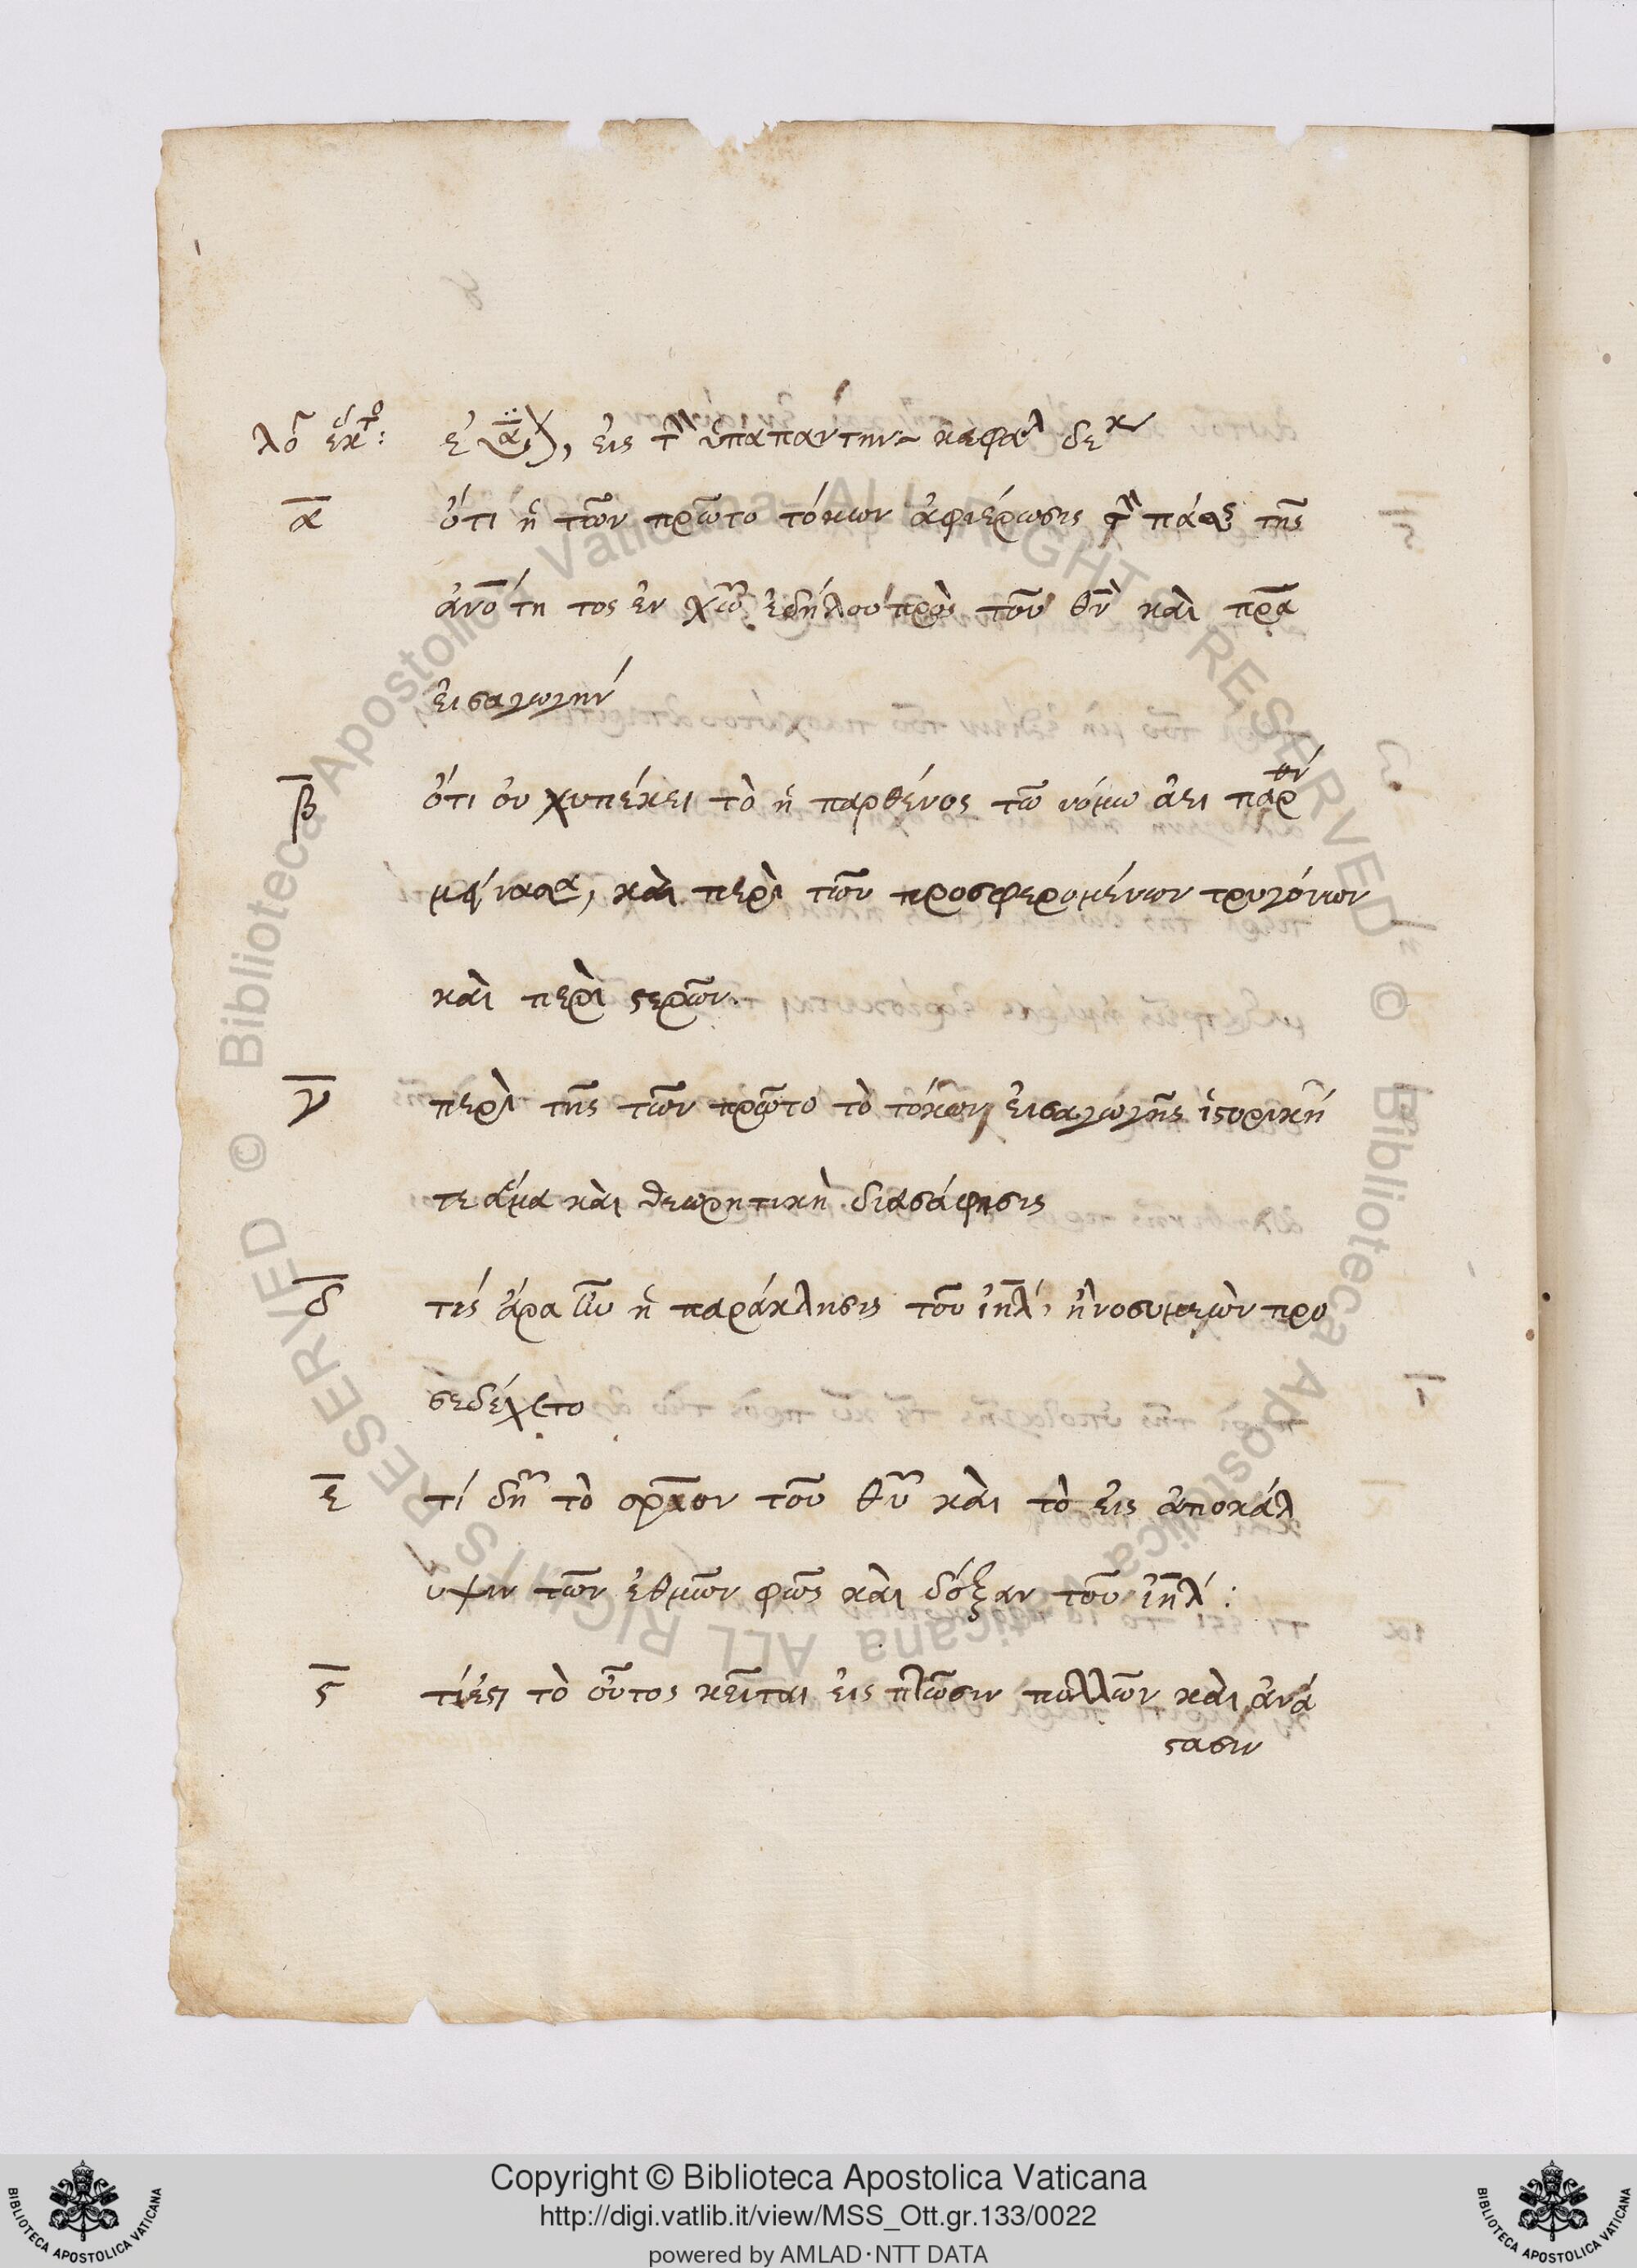 λό ἕκτο: εἰς τὴν ὑπαπαντὴν κεφαλ δεκ
α ὅτι ἡ τῶν πρωτο τόκων ἀφιέρωσις τὴν πάσης τῆς
ἀνο͞τητος ἐν χω ἐδήλου πρὸς τὸν θν καὶ πρα
εἰσαγωγήν
β ὅτι οὐχ υπέκει τὸ ἡ παρθένος τῶ νόμω ἀει παρθέν
μείνασα, καὶ περὶ τῶν προσφερομένων τρυγόνων
καὶ περὶ ϛερῶν.
γ περὶ τῆς τῶν πρωτο το τόκων εἰσαγωγῆς ἱϛορικὴ
τε ἅμα καὶ θεωρητικὴ διασάφησις
δ τίς ἄρα ὧν ἡ παράκλησις τοῦ ιηλ, ἣν ὁ συμεὼν προ
σεδέχετο
ε τί δὴ τὸ τοῦ θυ καὶ τὸ εἰς ἀποκάλ
υψιν τῶν ἐθνῶν φῶς καὶ δόξαν τοῦ ιηλ :
ϛ τί ἐϛι τὸ οὗτος κεῖται εἰς πτῶσιν πολλῶν καὶ ἀνά
ϛασιν
Copyright © Biblioteca Apostolica Vaticana
http://digi.vatlib.it/view/MSS_Ott.gr.133/0022
powered by AMLAD·NTT DATA
BIBLIOTECA APOSTOLICA VATICANA
BIBLIOTECA APOSTOLICA VATICANA